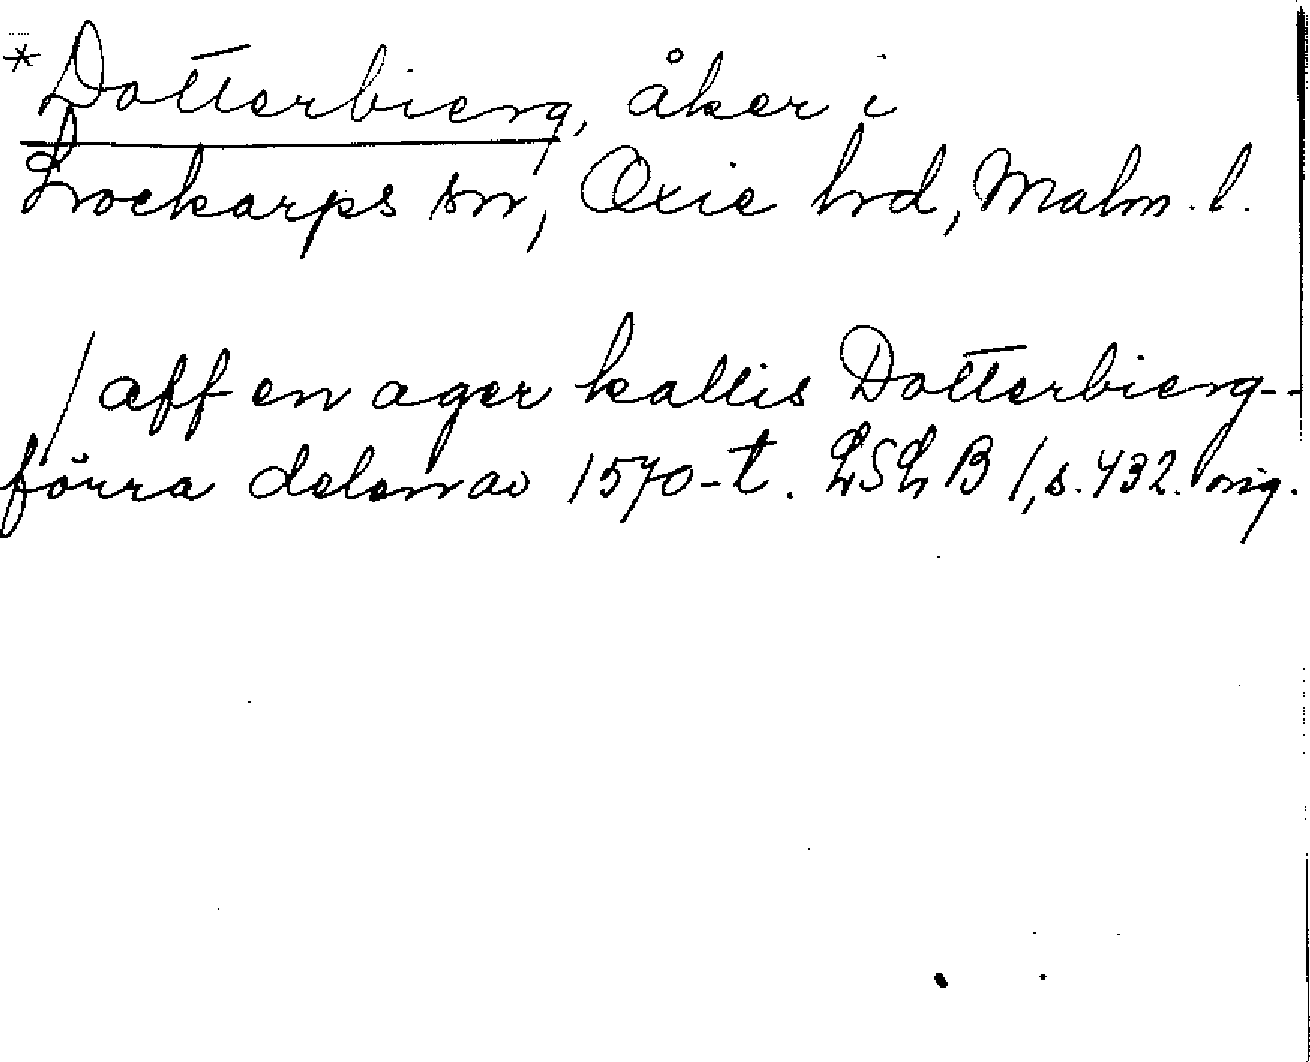 *Dotterbierg, åker i
Lockarps sn, Oxie hd, Malm. l.
/ aff en ager kallis Dotterbierg--
förra delen av 1570-t. LSL B 1, s. 432. orig.